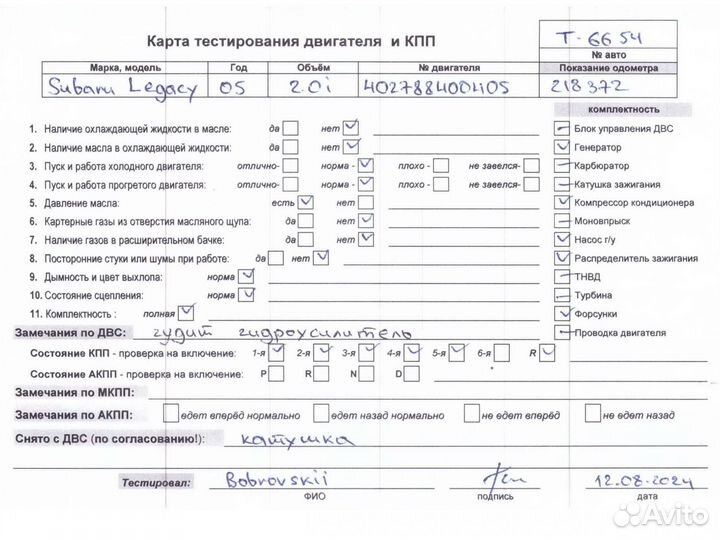 Карта тестирования двигателя и КПП
T-6654
№ авто
Марка, модель Год Объём № двигателя Показание одометра
Subaru Legacy 05 2.0i 402788400405 218372
комплектность
1. Наличие охлаждающей жидкости в масле: да нет Блок управления ДВС
2. Наличие масла в охлаждающей жидкости: да нет Генератор
3. Пуск и работа холодного двигателя: отлично- норма - плохо - не завелся- Карбюратор
4. Пуск и работа прогретого двигателя: отлично- норма - плохо - не завелся- Катушка зажигания
5. Давление масла: есть нет Компрессор кондиционера
6. Картерные газы из отверстия масляного щупа: да нет Моновпрыск
7. Наличие газов в расширительном бачке: да нет Насос г/у
8. Посторонние стуки или шумы при работе: да нет Распределитель зажигания
9. Дымность и цвет выхлопа: норма ТНВД
10. Состояние сцепления: норма Турбина
11. Комплектность : полная Форсунки
Замечания по ДВС: гудит гидроусилитель Проводка двигателя
Состояние КПП - проверка на включение: 1-я 2-я 3-я 4-я 5-я 6-я R
Состояние АКПП - проверка на включение: P R N D
Замечания по МКПП:
Замечания по АКПП: едет вперёд нормально едет назад нормально не едет вперёд не едет назад
Снято с ДВС (по согласованию!): катушка
Тестировал: Bobrovskii 12.08.2024
ФИО подпись дата
Avito